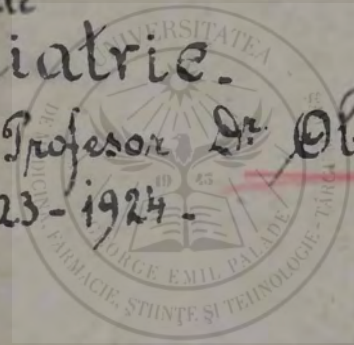 iatrie.
Profesor Dr. Ob
23-1924-
UNIVERSITATEA
DE MEDICINĂ, FARMACIE, ȘTIINȚE ȘI TEHNOLOGIE
GEORGE EMIL PALADE
1945